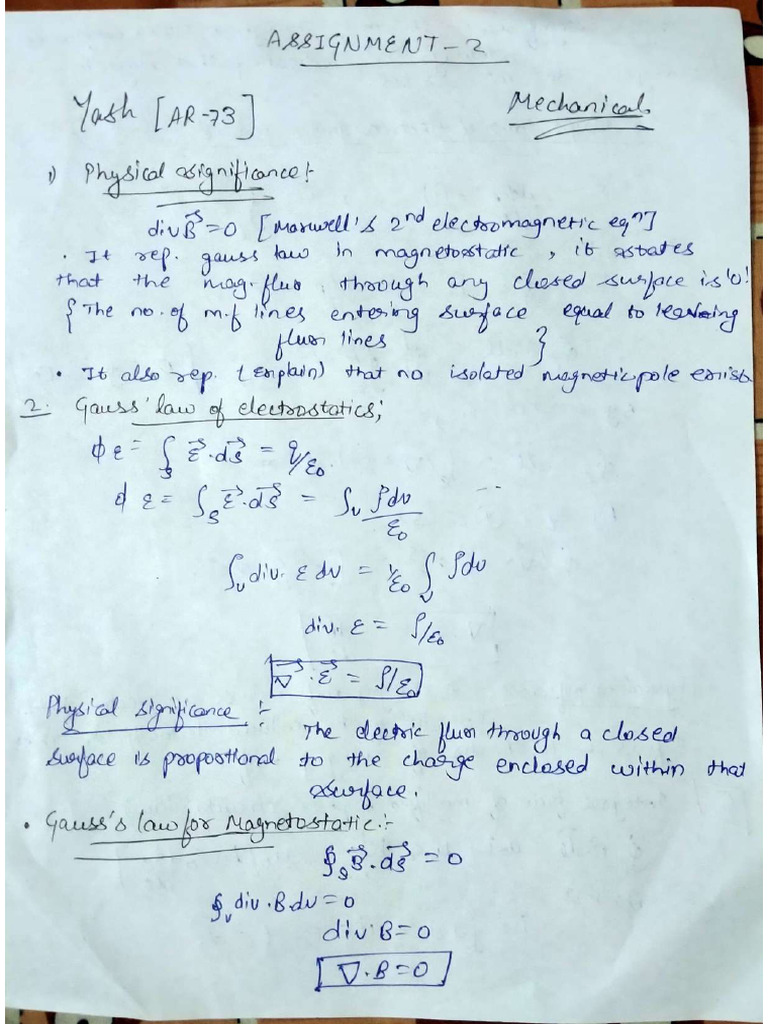 ASSIGNMENT-2
Yash [AR-73]
Mechanical
1) Physical significance:-
div B⃗=0 [Maxwell's 2nd electromagnetic eqn]
• It rep. gauss law in magnetostatic, it states
that the mag. flux through any closed surface is '0'
{ The no. of m.f lines entering surface equal to leaving
flux lines }
• It also rep. (Explain) that no isolated magnetic pole exist
2. Gauss' law of electrostatics;
ϕε = ∫s ε⃗.ds⃗ = q/ε₀
ϕε = ∫s ε⃗.ds⃗ = ∫v ρdv/ε₀
∫v div. ε dv = 1/ε₀ ∫v ρdv
div. ε = ρ/ε₀
∇⃗.ε⃗ = ρ/ε₀
Physical significance :- The electric flux through a closed
surface is proportional to the charge enclosed within that
surface.
• Gauss's law for Magnetostatic:-
∮s B⃗.ds⃗ = 0
∮v div.B.dv=0
div B=0
∇.B=0